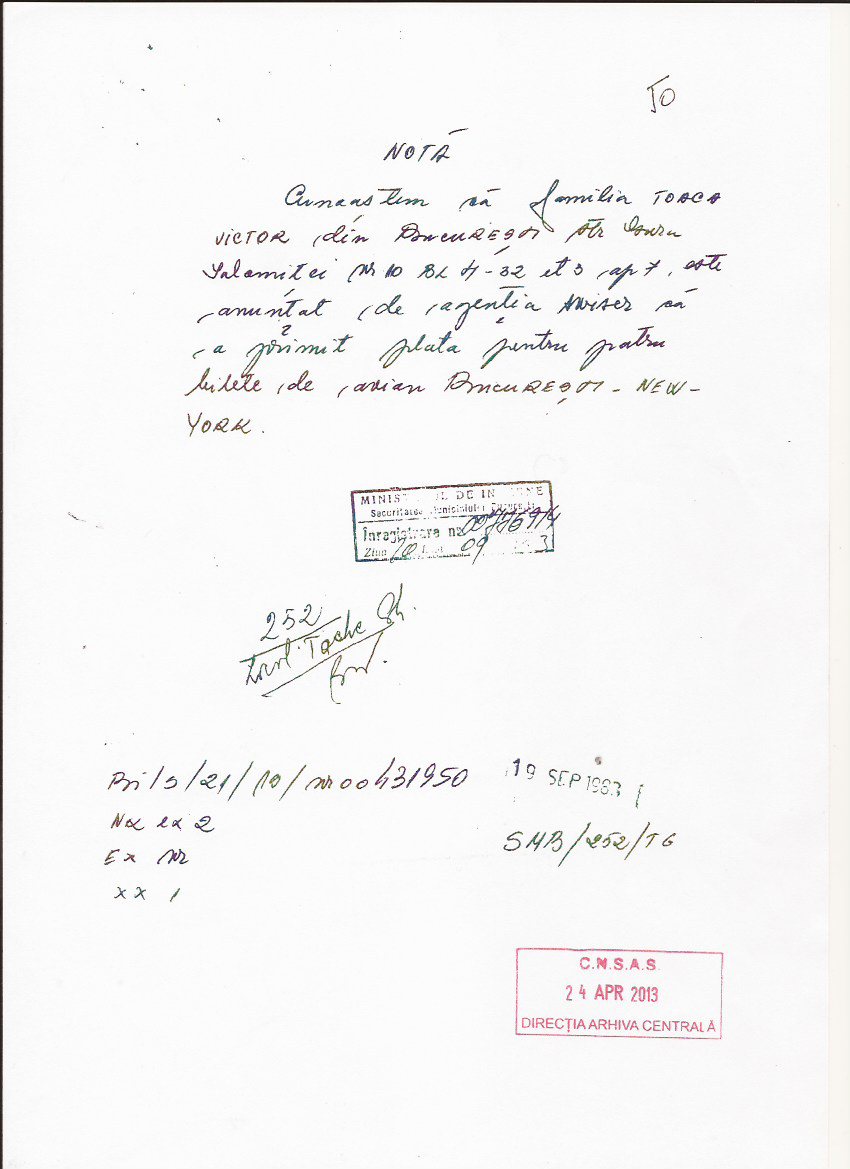 TO
NOTĂ
Cunoaștem că familia TOACA
VICTOR din BUCUREȘTI str
Ialomitei nr 10 BL H-32 et 3 ap 7, este
anunțat de agenția că
a primit plata pentru patru
bilete de avion BUCUREȘTI - NEW-
YORK.
MINIST UL DE IN NE
Securitatea Municipiului București
Înregistrare nr.
Ziua 20 09 3
252
Tache Gh.
/5/21/10/nr 00431950
ex 2
Ex nr
xx 1
19 SEP 1983
SMB/252/TG
C.N.S.A.S.
24 APR 2013
DIRECȚIA ARHIVA CENTRALĂ